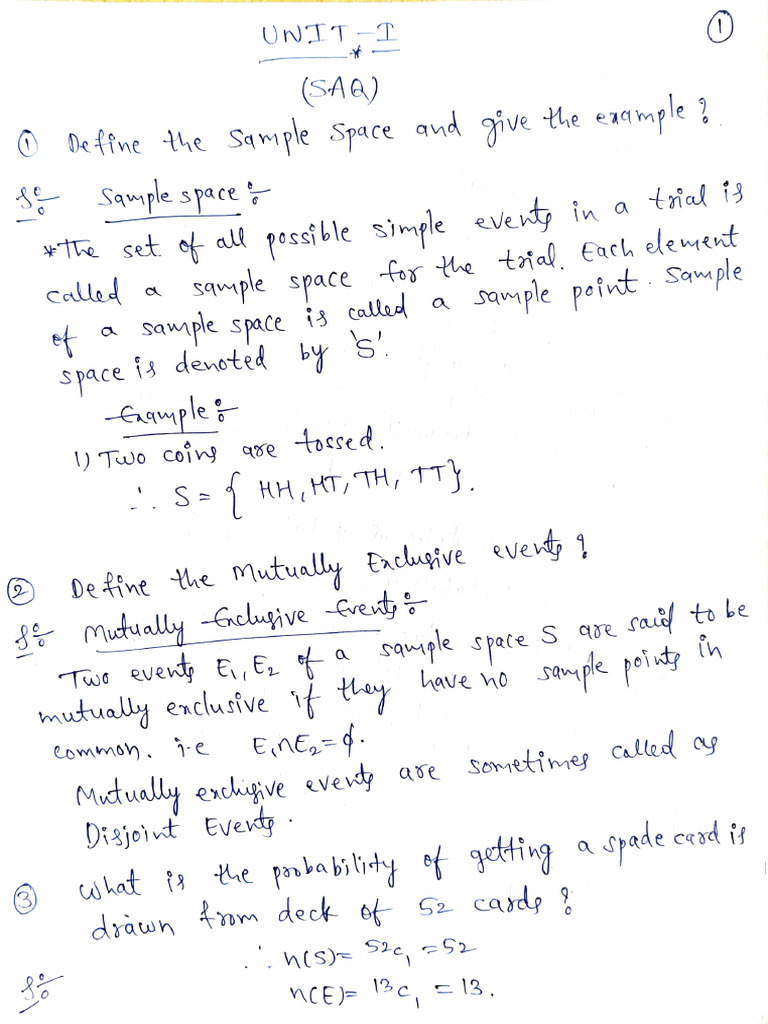 ①
UNIT-I
*
(SAQ)
① Define the Sample Space and give the example?
So:- Sample space:-
*The set of all possible simple events in a trial is
called a sample space for the trial. Each element
of a sample space is called a sample point. Sample
space is denoted by 'S'.
Example:-
1) Two coins are tossed.
∴ S = { HH, HT, TH, TT}.
② Define the Mutually Exclusive events?
So:- Mutually Exclusive Events:-
Two events E₁, E₂ of a sample space S are said to be
mutually exclusive if they have no sample points in
common. i.e E₁∩E₂=ϕ.
Mutually exclusive events are sometimes called as
Disjoint Events.
③ What is the probability of getting a spade card is
drawn from deck of 52 cards?
∴ n(S)= 52c₁ = 52
So:- n(E)= 13c₁ = 13.